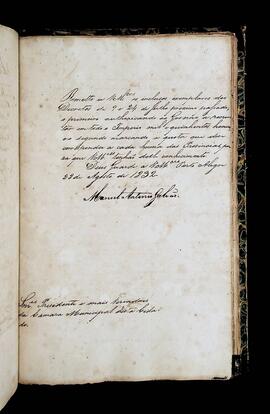 Remetto a VV.Mces os inclusos exemplares dos
Decretos de 9 e 24 de Julho proximo passado,
o primeiro authorisando ao Governo a recru
tar em todo o Imperio mil e quinhentos homens,
o segundo marcando a quota que deve
comprehender a cada huma das Provincias, pa
ra que VVMces tenhão deste conhecimento.
Deus Guarde a VVMces Porto Alegre
23 de Agosto de 1832
Manuel Antonio Galvão
Snres Presidente e mais Vereadores
da Camara Municipal desta Cida
de.